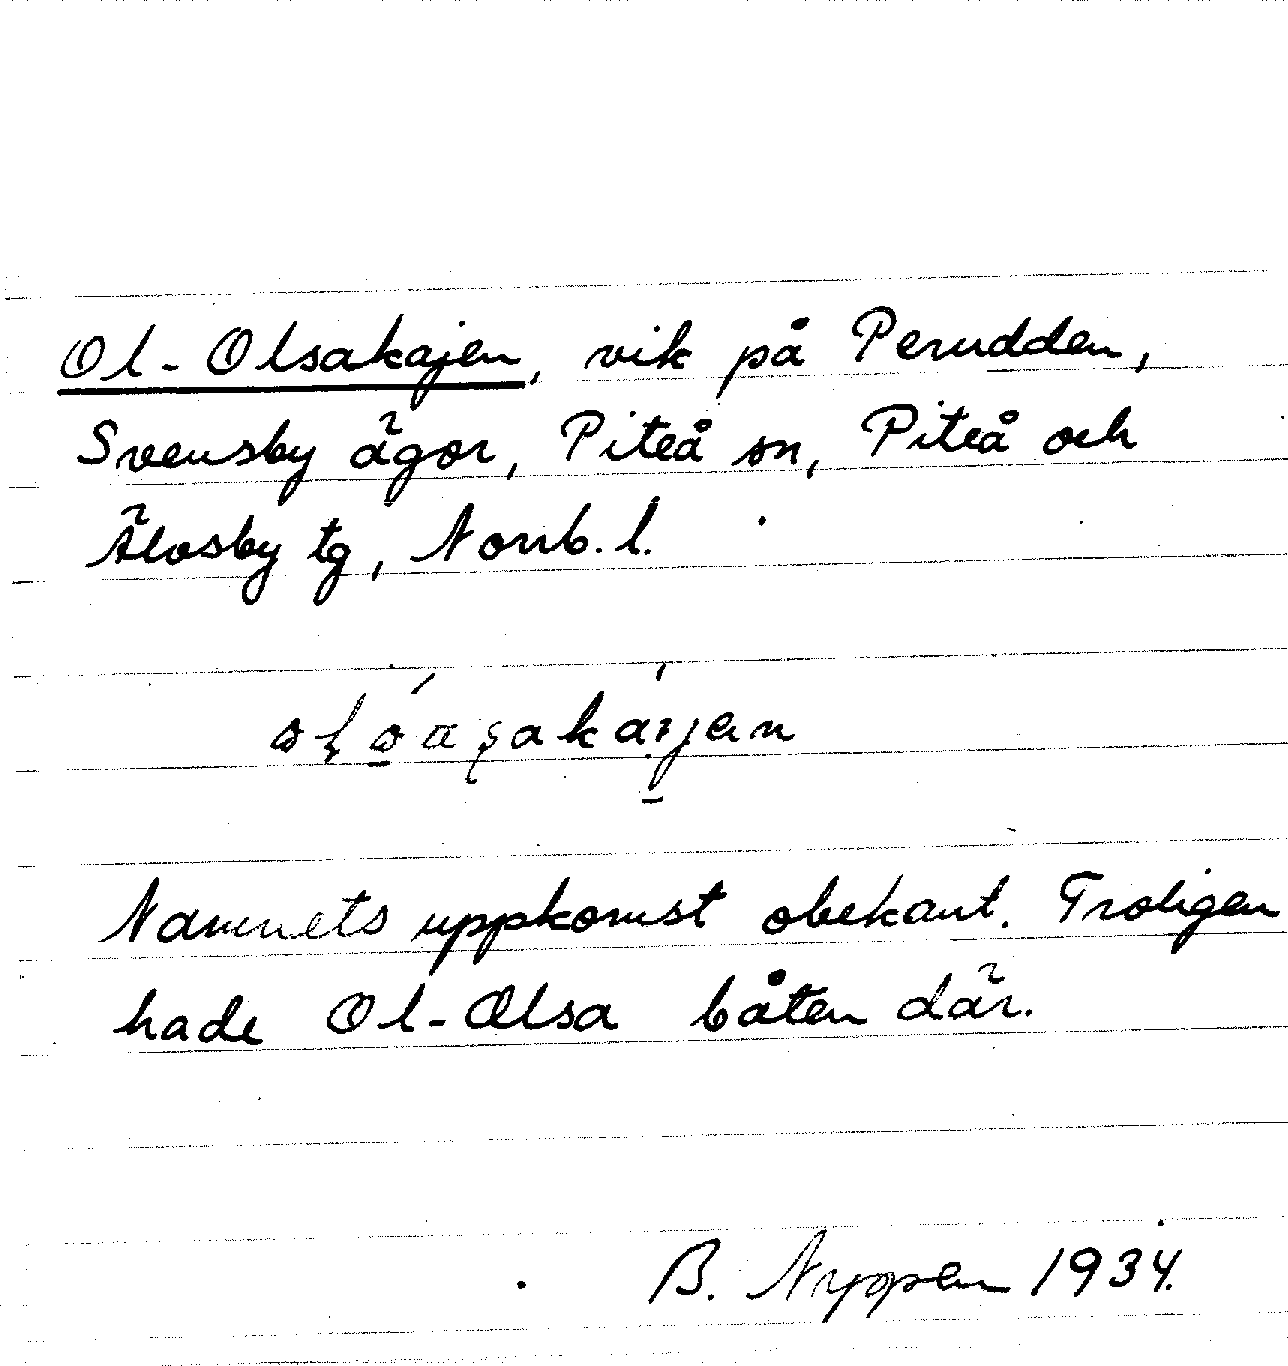 Ol-Olsakajen, vik på Perudden,
Svensby ägor, Piteå sn, Piteå och
Älvsby tg, Norrb. l.
Namnets uppkomst obekant. Troligen
hade Ol-Olsa båten där.
B. Nyppen 1934.